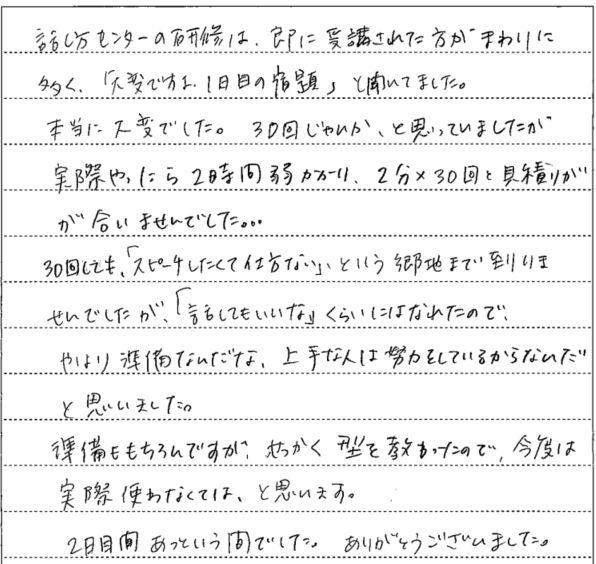 話し方センターの研修は、即に受講された方がまわりに
多く、「大変ですよ、1日目の宿題」と聞いてました。
本当に大変でした。30回じゃんか、と思っていましたが
実際やったら2時間弱かかり、2分×30回と見積りが
が合いませんでした。。。
30回しても、「スピーチしたくて仕方ない」、という郷地まで到りま
せんでしたが、「話してもいいな」くらいにはなれたので、
やはり準備なんだな、上手な人は努力をしているからなんだ
と思いました。
準備ももちろんですが、せっかく型を教わったので、今度は
実際使わなくては、と思います。
2日目間あっという間でした。ありがとうございました。